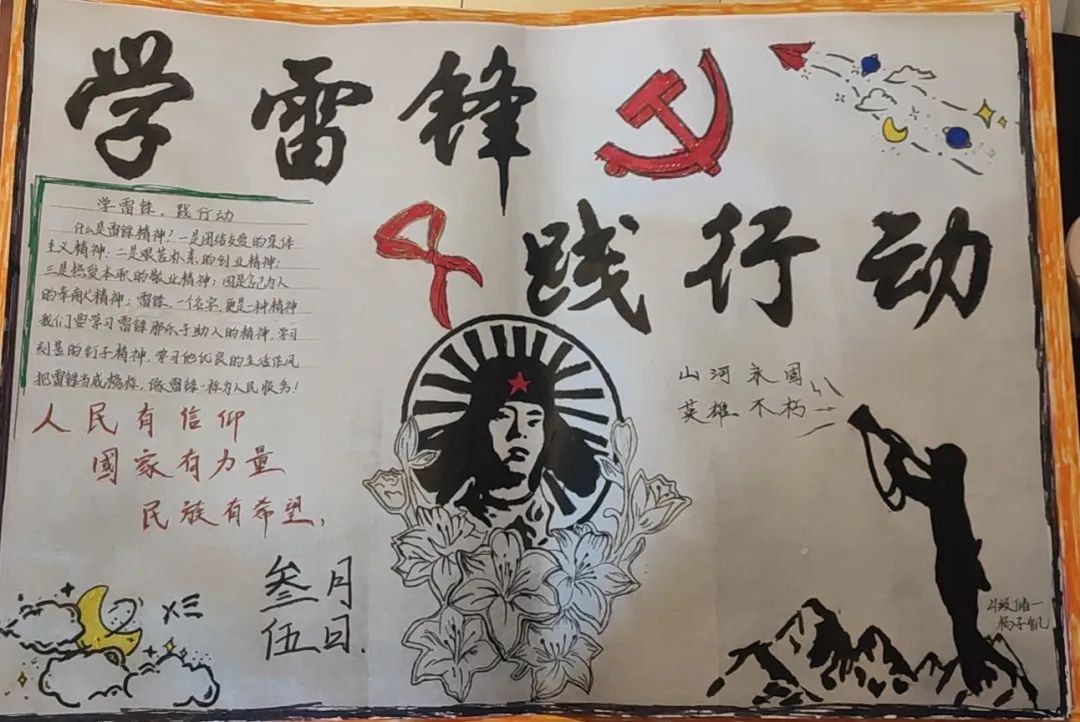 学雷锋
践行动
学雷锋，践行动
什么是雷锋精神？一是团结友爱的集体
主义精神；二是艰苦朴素的创业精神；
三是热爱本职的敬业精神；四是舍己为人
的奉献精神；雷锋，一个名字，更是一种精神
我们要学习雷锋那乐于助人的精神，学习
刻苦的钉子精神，学习他优良的生活作风
把雷锋当成榜样，像雷锋一样为人民服务！
人民有信仰
國家有力量
民族有希望，
叁月
伍日.
山河永固
英雄不朽
21级 一
杨子帆